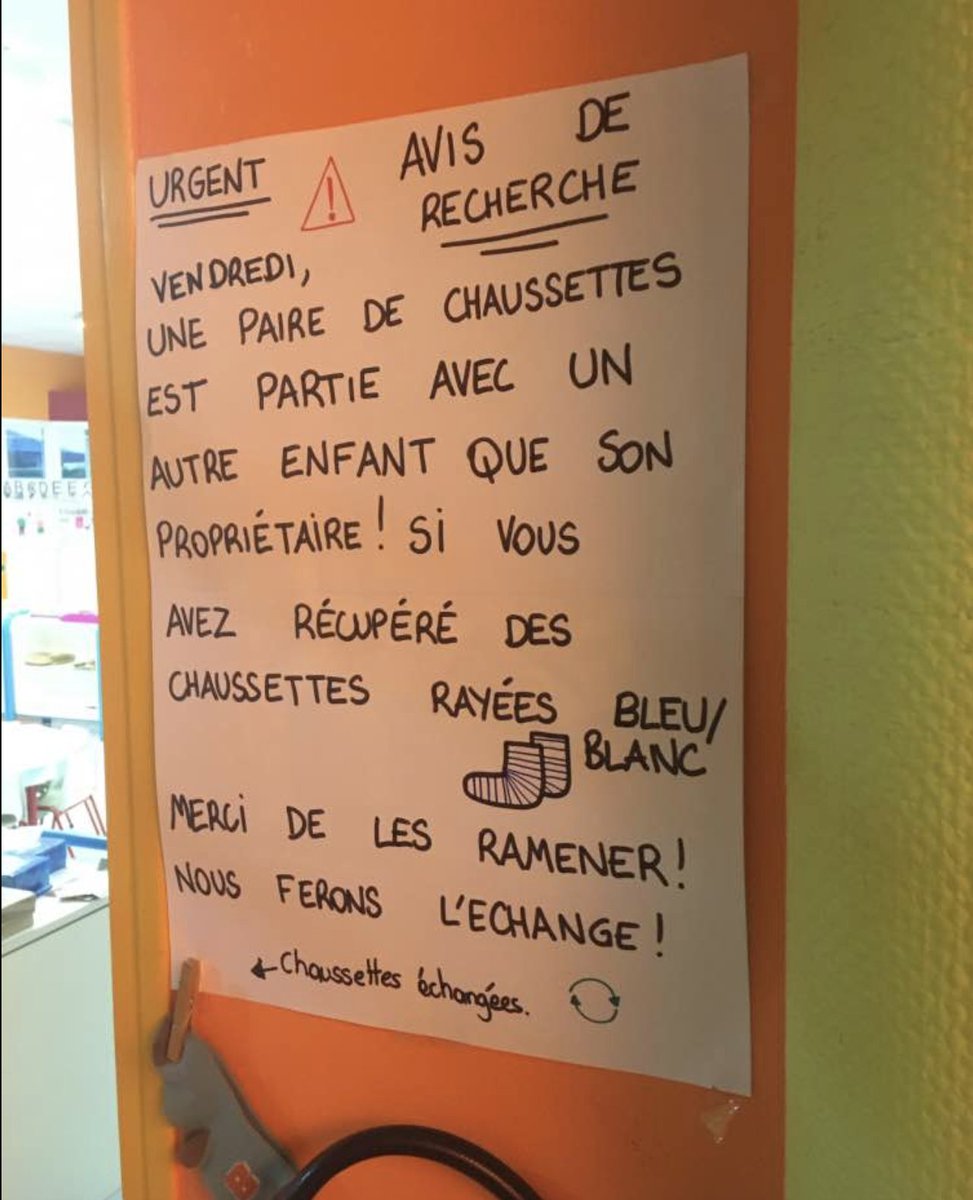 URGENT ! AVIS DE
RECHERCHE
VENDREDI,
UNE PAIRE DE CHAUSSETTES
EST PARTIE AVEC UN
AUTRE ENFANT QUE SON
PROPRIÉTAIRE! SI VOUS
AVEZ RÉCUPÉRÉ DES
CHAUSSETTES RAYÉES BLEU/
BLANC
MERCI DE LES RAMENER!
NOUS FERONS L'ECHANGE!
←Chaussettes échangées.